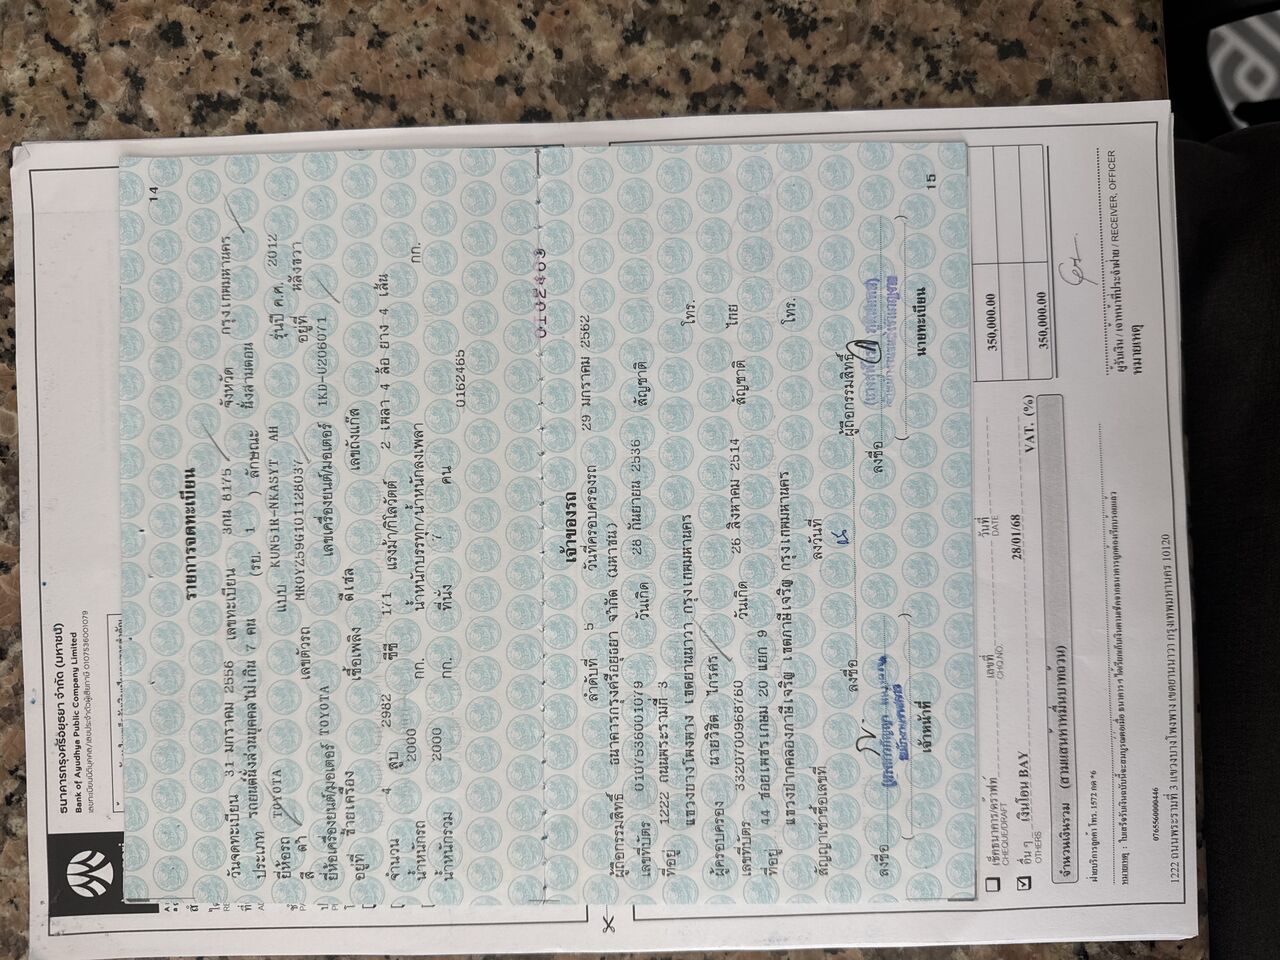 ธนาคารกรุงศรีอยุธยา จำกัด (มหาชน)
Bank of Ayudhya Public Company Limited
เลขทะเบียนนิติบุคคล/เลขประจำตัวผู้เสียภาษี 0107536001079
14
รายการจดทะเบียน
วันจดทะเบียน 31 มกราคม 2556 เลขทะเบียน 3กน 8175 จังหวัด กรุงเทพมหานคร
ประเภท รถยนต์นั่งส่วนบุคคลไม่เกิน 7 คน (รย. 1 ) ลักษณะ นั่งสามตอน
ยี่ห้อรถ TOYOTA แบบ KUN51R-NKASYT AH รุ่นปี ค.ศ. 2012
สี ดำ เลขตัวรถ MR0YZ59G101128037 อยู่ที่ หลังขวา
ยี่ห้อเครื่องยนต์/มอเตอร์ TOYOTA เลขเครื่องยนต์/มอเตอร์ 1KD-U206071
อยู่ที่ ซ้ายเครื่อง เชื้อเพลิง ดีเซล เลขถังแก๊ส
จำนวน 4 สูบ 2982 ซีซี 171 แรงม้า/กิโลวัตต์ 2 เพลา 4 ล้อ ยาง 4 เส้น
น้ำหนักรถ 2000 กก. น้ำหนักบรรทุก/น้ำหนักลงเพลา กก.
น้ำหนักรวม 2000 กก. ที่นั่ง 7 คน
0162465
0102403
เจ้าของรถ
ลำดับที่ 5 วันที่ครอบครองรถ 29 มกราคม 2562
ผู้ถือกรรมสิทธิ์ ธนาคารกรุงศรีอยุธยา จำกัด (มหาชน)
เลขที่บัตร 0107536001079 วันเกิด 28 กันยายน 2536 สัญชาติ
ที่อยู่ 1222 ถนนพระรามที่ 3
แขวงบางโพงพาง เขตยานนาวา กรุงเทพมหานคร โทร.
ผู้ครอบครอง นายวิชิต ไกรศร
เลขที่บัตร 3320700968760 วันเกิด 26 สิงหาคม 2514 สัญชาติ ไทย
ที่อยู่ 44 ซอยเพชรเกษม 20 แยก 9
แขวงปากคลองภาษีเจริญ เขตภาษีเจริญ กรุงเทพมหานคร โทร.
สัญญาเช่าซื้อเลขที่ ลงวันที่
ลงชื่อ ผู้ถือกรรมสิทธิ์
ลงชื่อ ลงชื่อ
เจ้าหน้าที่ นายทะเบียน
15
350,000.00
350,000.00
เช็คธนาคาร/ดราฟท์ เลขที่ วันที่
CHEQUE/DRAFT CHQ.NO. DATE
อื่น ๆ เงินโอน BAY 28/01/68
OTHERS
VAT. (%)
จำนวนเงินรวม (สามแสนห้าหมื่นบาทถ้วน)
ผู้รับเงิน / เจ้าหน้าที่ประจำฝ่าย / RECEIVER, OFFICER
หมายเหตุ
ฝ่ายบริการลูกค้า โทร. 1572 กด *6
0765560000446
1222 ถนนพระรามที่ 3 แขวงบางโพงพาง เขตยานนาวา กรุงเทพมหานคร 10120